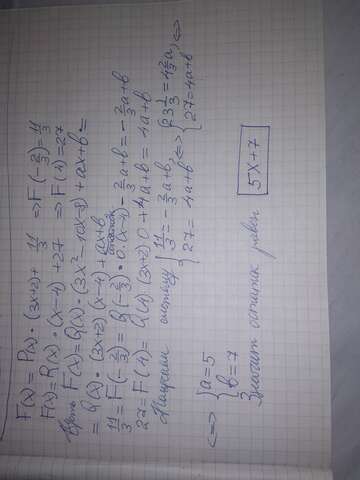 F(x) = P(x)·(3x+2) + 11/3 ⇒ F(-2/3) = 11/3
F(x) = R(x)·(x-4) + 27 ⇒ F(4) = 27
F(x) = Q(x)·(3x²-10x-8) + ax+b =
= Q(x)·(3x+2)(x-4) + ax+b
остаток
11/3 = F(-2/3) = Q(-2/3)·0·(x-4) - 2/3a+b = -2/3a+b
27 = F(4) = Q(4)(3x+2)0+4a+b = 4a+b
Получили систему { 11/3 = -2/3a+b, 27 = 4a+b ⇔ { 23 1/3 = 4 2/3a, 27 = 4a+b ⇔
⇔ { a = 5 b = 7
Значит остаток равен 5x+7